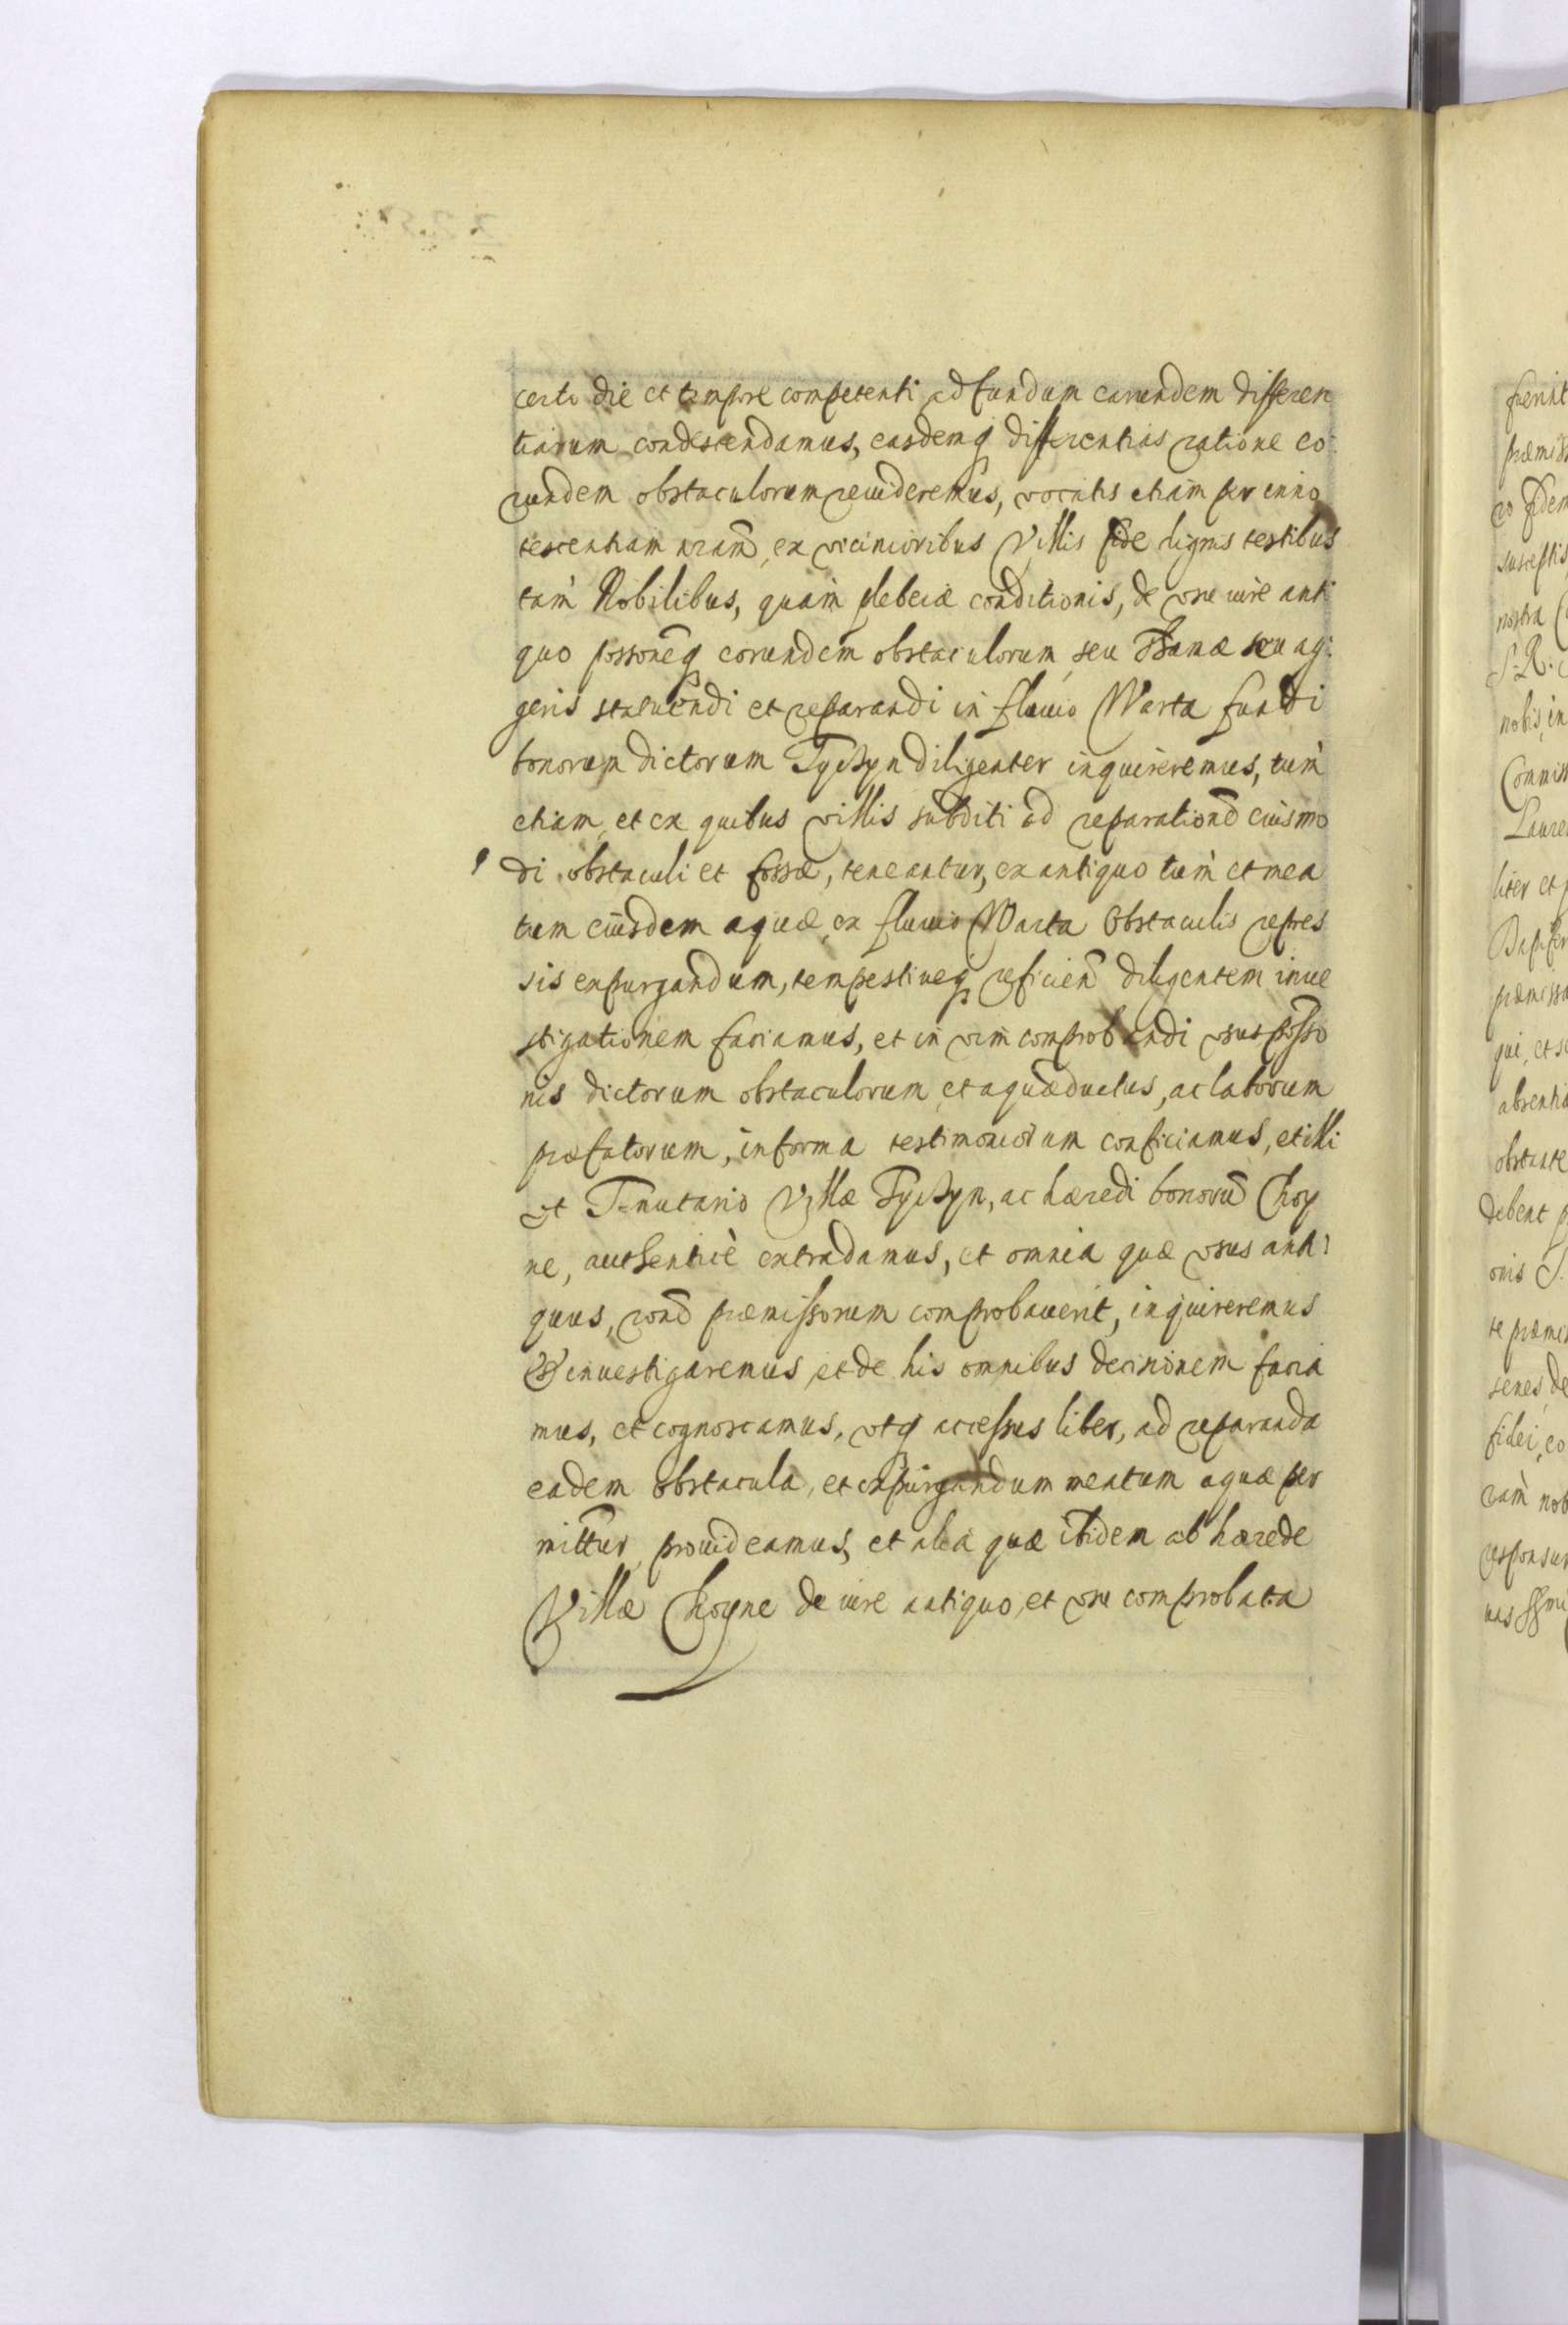 certo die et tempore competenti ad fundum earundem differen
tiarum condescendamus, easdemq differentias ratione eo
rundem obstaculorum reuideremus, vocatis etiam per inno
tescentiam nram, ex vicinioribus Villis fide dignis testibus
tam Nobilibus, quam plebeiæ conditionis, de usu iure anti
quo possoneq eorundem obstaculorum seu seu ag:
geris statuendi et reparandi in fluuio Warta fundi
bonorum dictorum Tyczyn diligenter inquireremus, tum
etiam et ex quibus villis subditi ad reparationē eiusmo
di obstaculi et fossæ, teneantur, ex antiquo tum et mea
tum eiusdem aquæ ex fluuio Warta Obstaculis repres
sis expurgandum, tempestiueq reficiend diligentem inue
stigationem faciamus, et in vim comprobandi usus posso
nis dictorum obstaculorum et aquæductus, ac laborum
præfatorum, in forma testimoniorum conficiamus, et illi
et Tenutario Villæ Tyczyn, ac hæredi bonorū Choy
ne, authenticè extradamus, et omnia quæ usus anti
quus, rone præmissorum comprobauerit, inquireremus
& inuestigaremus et de his omnibus decisionem facia
mus, et cognoscamus, utq accessus liber, ad reparanda
eadem obstacula, et expurgandum meatum aquæ per
mittur prouideamus, et alia quæ ibidem ab hærede
Villæ Choyne de iure antiquo, et usu comprobata
fuerint
præmiss
ro fidem
susceptis
nostra
S: R:
nobis, in
Commiss
Lauren
liter et p
præmissa
qui, et s
absentia
obstante
debent p
onis S.
te præmis
senes, de
fidei, co
ram nob
responsur